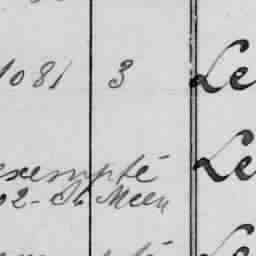 1081 3 Le
exempté Le
02 - St Meen
Le